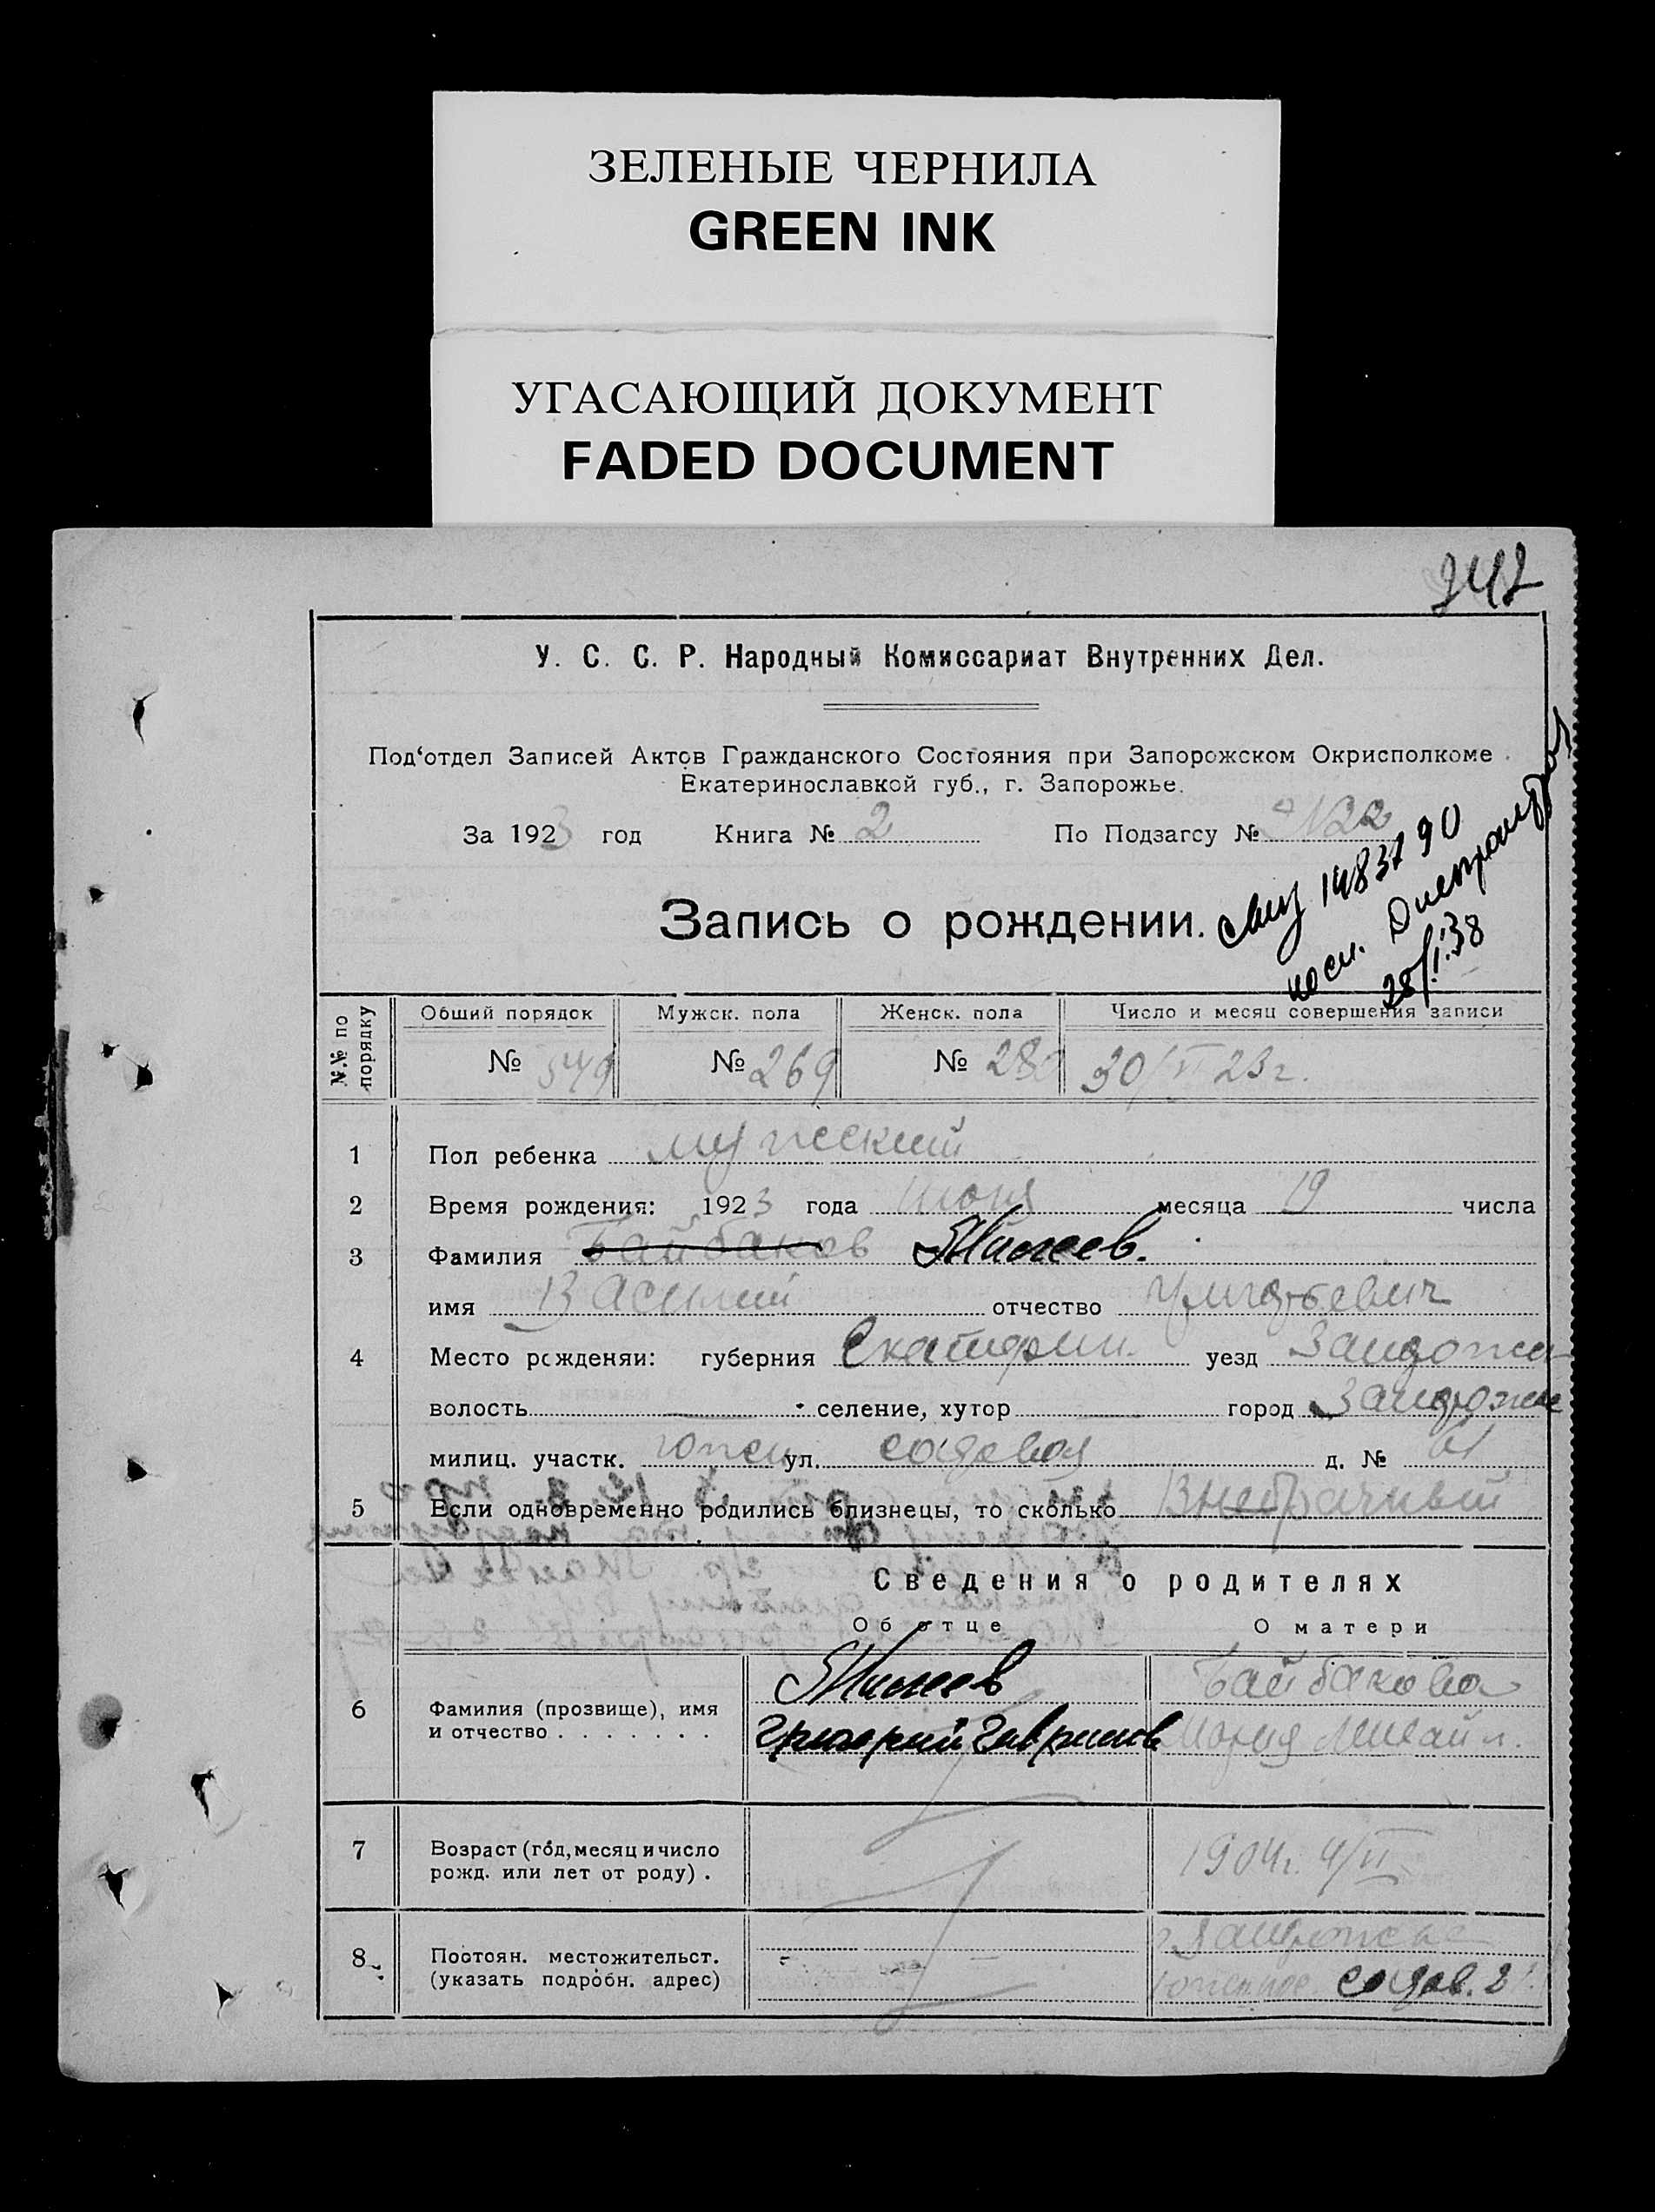 ЗЕЛЕНЫЕ ЧЕРНИЛА
GREEN INK
УГАСАЮЩИЙ ДОКУМЕНТ
FADED DOCUMENT
У. С. С. Р. Народный Комиссариат Внутренних Дел.
Под‘отдел Записей Актов Гражданского Состояния при Запорожском Окрисполкоме
Екатеринославкой губ., г. Запорожье.
За 1923 год Книга № 2 По Подзагсу №
Запись о рождении.
28/I.38
№№ по порядку Общий порядок Мужск. пола Женск. пола Число и месяц совершения записи
№ 549 № 269 № 280 30/VI 23 г.
1 Пол ребенка мужеский
2 Время рождения: 1923 года июня месяца 19 числа
3 Фамилия Байбаков
имя Василий отчество
4 Место рожденяи: губерния Екатерин. уезд Запорож
волость селение, хутор город Запорожье
милиц. участк. южн ул. садовая д. №
5 Если одновременно родились близнецы, то сколько Внебрачный
Сведения о родителях
Об отце О матери
6 Фамилия (прозвище), имя и отчество
Байбакова
Григорий Гаврилов Мария Михайл.
7 Возраст (год, месяц и число рожд. или лет от роду) . 1904 г. 4/VI
8 Постоян. местожительст. (указать подробн. адрес)
Запорожье
садов.